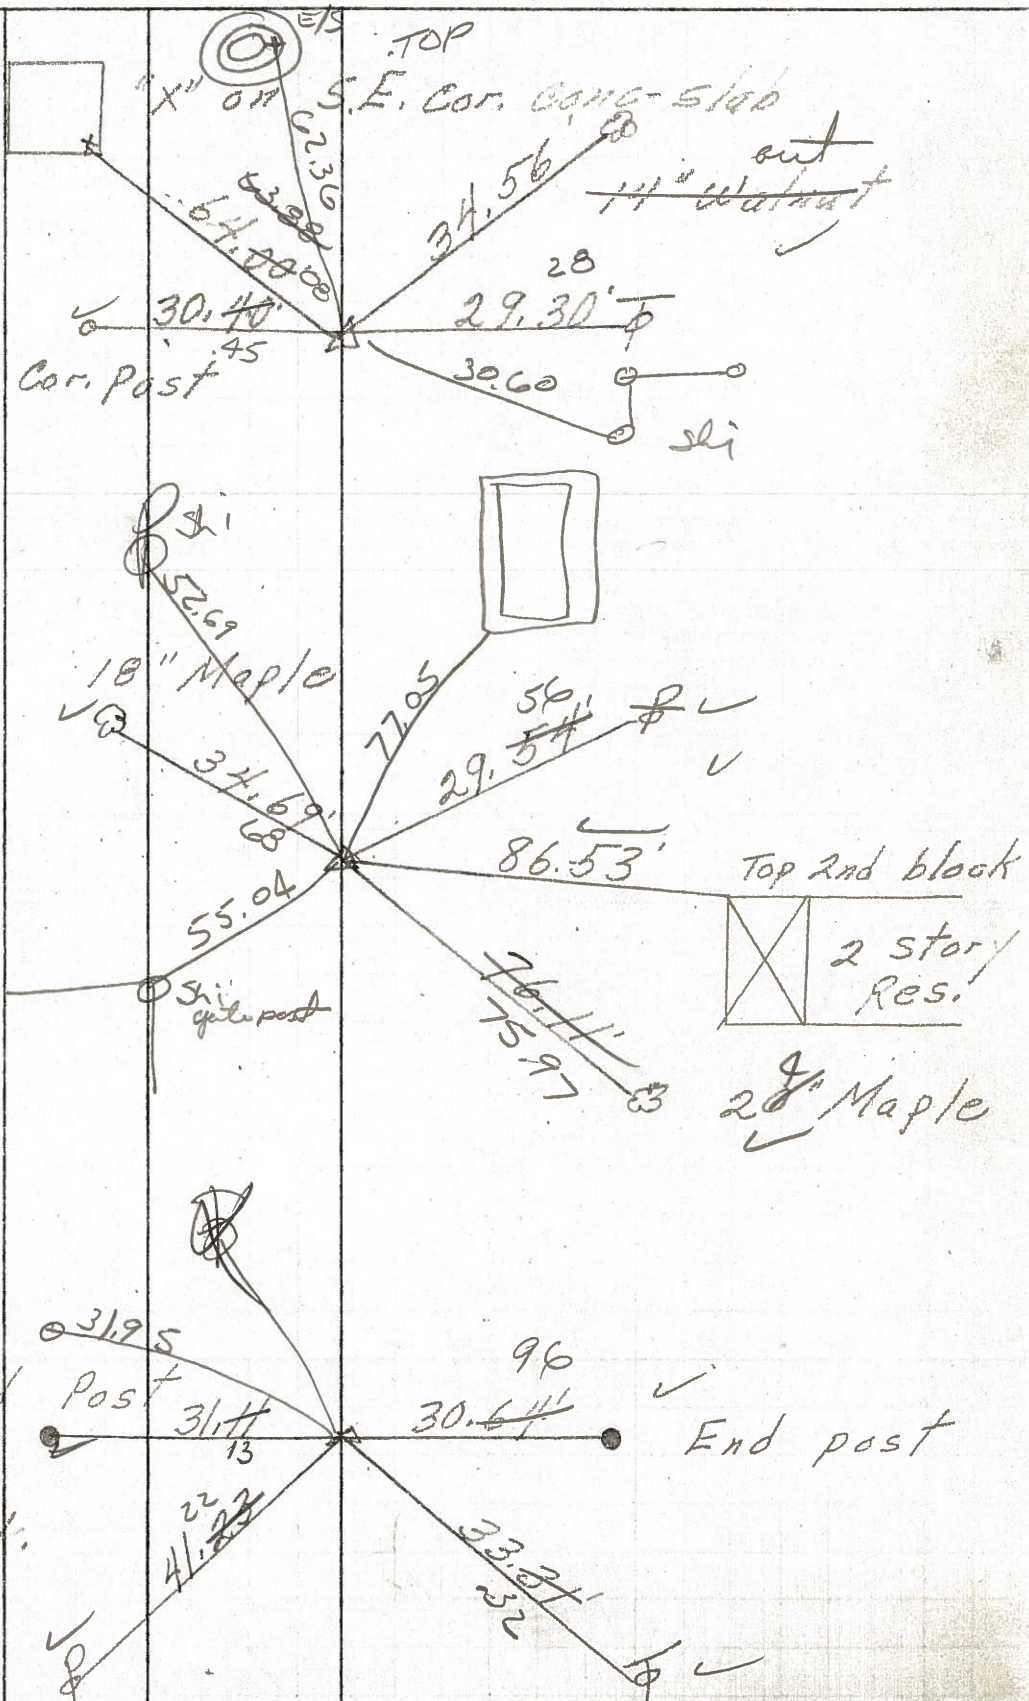 E/S
TOP
"X" on S.E. Cor. conc-slab
62.36
63.88
64.00 08
34.56
out
14" Walnut
28
29.30'
30.40'
.45
Cor. Post
30.60
52.69
18" Maple
77.05
56
29.54'
34.69'
68
86.53'
Top 2nd block
2 story
Res.
55.04
gate post
76.11'
75.97
Maple
31.95
Post
31.11
13
96
30.64'
End post
22
41.23
33.31'
32